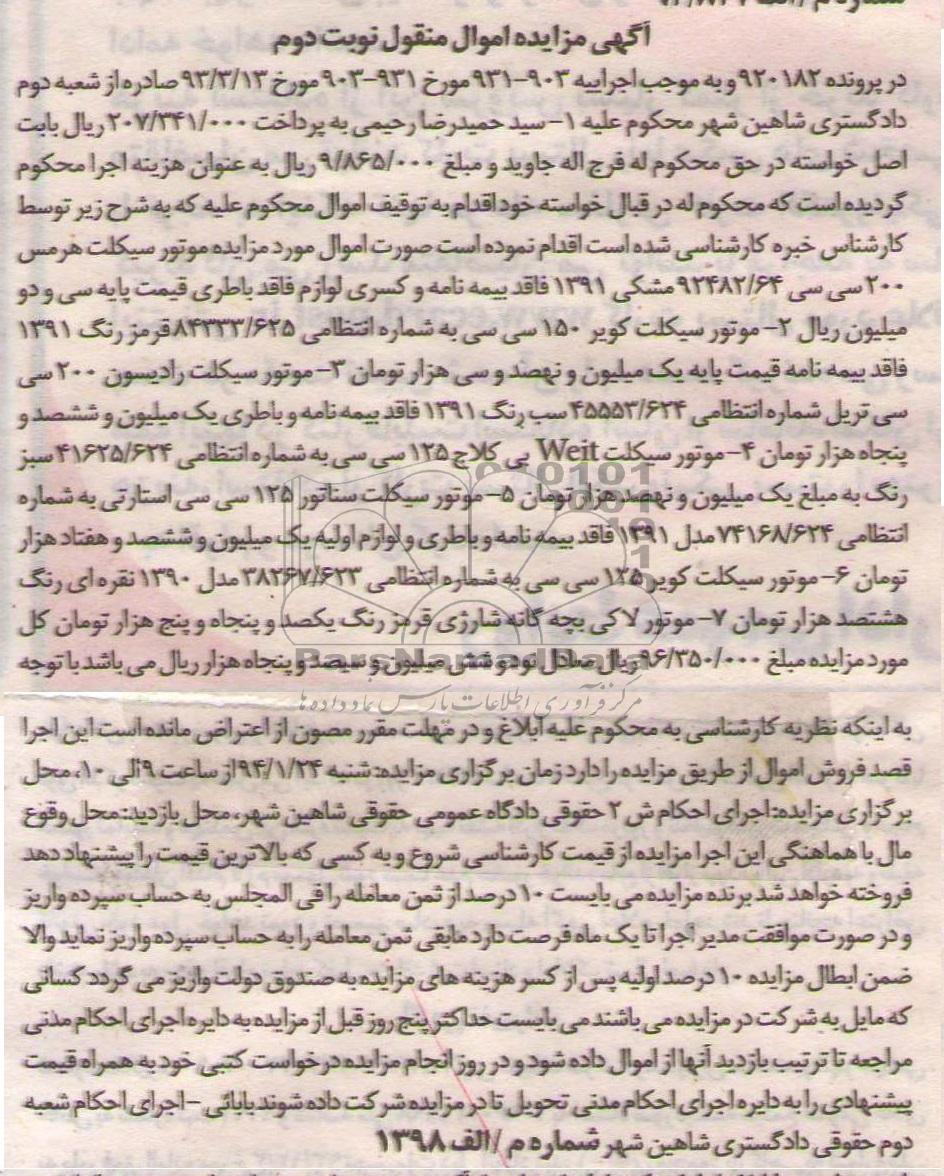 آگهی مزایده اموال منقول نوبت دوم
در پرونده ۹۲۰۱۸۲ و به موجب اجراییه ۹۰۳-۹۳۱ مورخ ۹۳۱-۹۰۳ مورخ ۹۳/۳/۱۳ صادره از شعبه دوم
دادگستری شاهین شهر محکوم علیه ۱- سید حمیدرضا رحیمی به پرداخت ۲۰۷/۳۴۱/۰۰۰ ریال بابت
اصل خواسته در حق محکوم له فرج اله جاوید و مبلغ ۹/۸۶۵/۰۰۰ ریال به عنوان هزینه اجرا محکوم
گردیده است که محکوم له در قبال خواسته خود اقدام به توقیف اموال محکوم علیه که به شرح زیر توسط
کارشناس خبره کارشناسی شده است اقدام نموده است صورت اموال مورد مزایده موتور سیکلت هرمس
۲۰۰ سی سی ۹۲۴۸۲/۶۴ مشکی ۱۳۹۱ فاقد بیمه نامه و کسری لوازم فاقد باطری قیمت پایه سی و دو
میلیون ریال ۲- موتور سیکلت کویر ۱۵۰ سی سی به شماره انتظامی ۸۴۳۳۳/۶۲۵ قرمز رنگ ۱۳۹۱
فاقد بیمه نامه قیمت پایه یک میلیون و نهصد و سی هزار تومان ۳- موتور سیکلت رادیسون ۲۰۰ سی
سی تریل شماره انتظامی ۴۵۵۵۳/۶۲۴ سب رنگ ۱۳۹۱ فاقد بیمه نامه و باطری یک میلیون و ششصد و
پنجاه هزار تومان ۴- موتور سیکلت Weit بی کلاچ ۱۲۵ سی سی به شماره انتظامی ۴۱۶۲۵/۶۲۴ سبز
رنگ به مبلغ یک میلیون و نهصد هزار تومان ۵- موتور سیکلت سناتور ۱۲۵ سی سی استارتی به شماره
انتظامی ۷۴۱۶۸/۶۲۴ مدل ۱۳۹۱ فاقد بیمه نامه و باطری و لوازم اولیه یک میلیون و ششصد و هفتاد هزار
تومان ۶- موتور سیکلت کویر ۱۲۵ سی سی به شماره انتظامی ۳۸۲۶۷/۶۲۳ مدل ۱۳۹۰ نقره ای رنگ
هشتصد هزار تومان ۷- موتور لاکی بچه گانه شارژی قرمز رنگ یکصد و پنجاه و پنج هزار تومان کل
مورد مزایده مبلغ ۹۶/۳۵۰/۰۰۰ ریال معادل نود و شش میلیون و سیصد و پنجاه هزار ریال می باشد با توجه
ParsNamadData
مرکز فرآوری اطلاعات پارس نماد داده ها
به اینکه نظریه کارشناسی به محکوم علیه ابلاغ و در مهلت مقرر مصون از اعتراض مانده است این اجرا
قصد فروش اموال از طریق مزایده را دارد زمان برگزاری مزایده: شنبه ۹۴/۱/۲۴ از ساعت ۹ الی ۱۰، محل
برگزاری مزایده: اجرای احکام ش ۲ حقوقی دادگاه عمومی حقوقی شاهین شهر، محل بازدید: محل وقوع
مال با هماهنگی این اجرا مزایده از قیمت کارشناسی شروع و به کسی که بالاترین قیمت را پیشنهاد دهد
فروخته خواهد شد برنده مزایده می بایست ۱۰ درصد از ثمن معامله را فی المجلس به حساب سپرده واریز
و در صورت موافقت مدیر اجرا تا یک ماه فرصت دارد مابقی ثمن معامله را به حساب سپرده واریز نماید والا
ضمن ابطال مزایده ۱۰ درصد اولیه پس از کسر هزینه های مزایده به صندوق دولت واریز می گردد کسانی
که مایل به شرکت در مزایده می باشند می بایست حداکثر پنج روز قبل از مزایده به دایره اجرای احکام مدنی
مراجعه تا ترتیب بازدید آنها از اموال داده شود و در روز انجام مزایده درخواست کتبی خود به همراه قیمت
پیشنهادی را به دایره اجرای احکام مدنی تحویل تا در مزایده شرکت داده شوند بابائی - اجرای احکام شعبه
دوم حقوقی دادگستری شاهین شهر شماره م/الف ۱۳۹۸